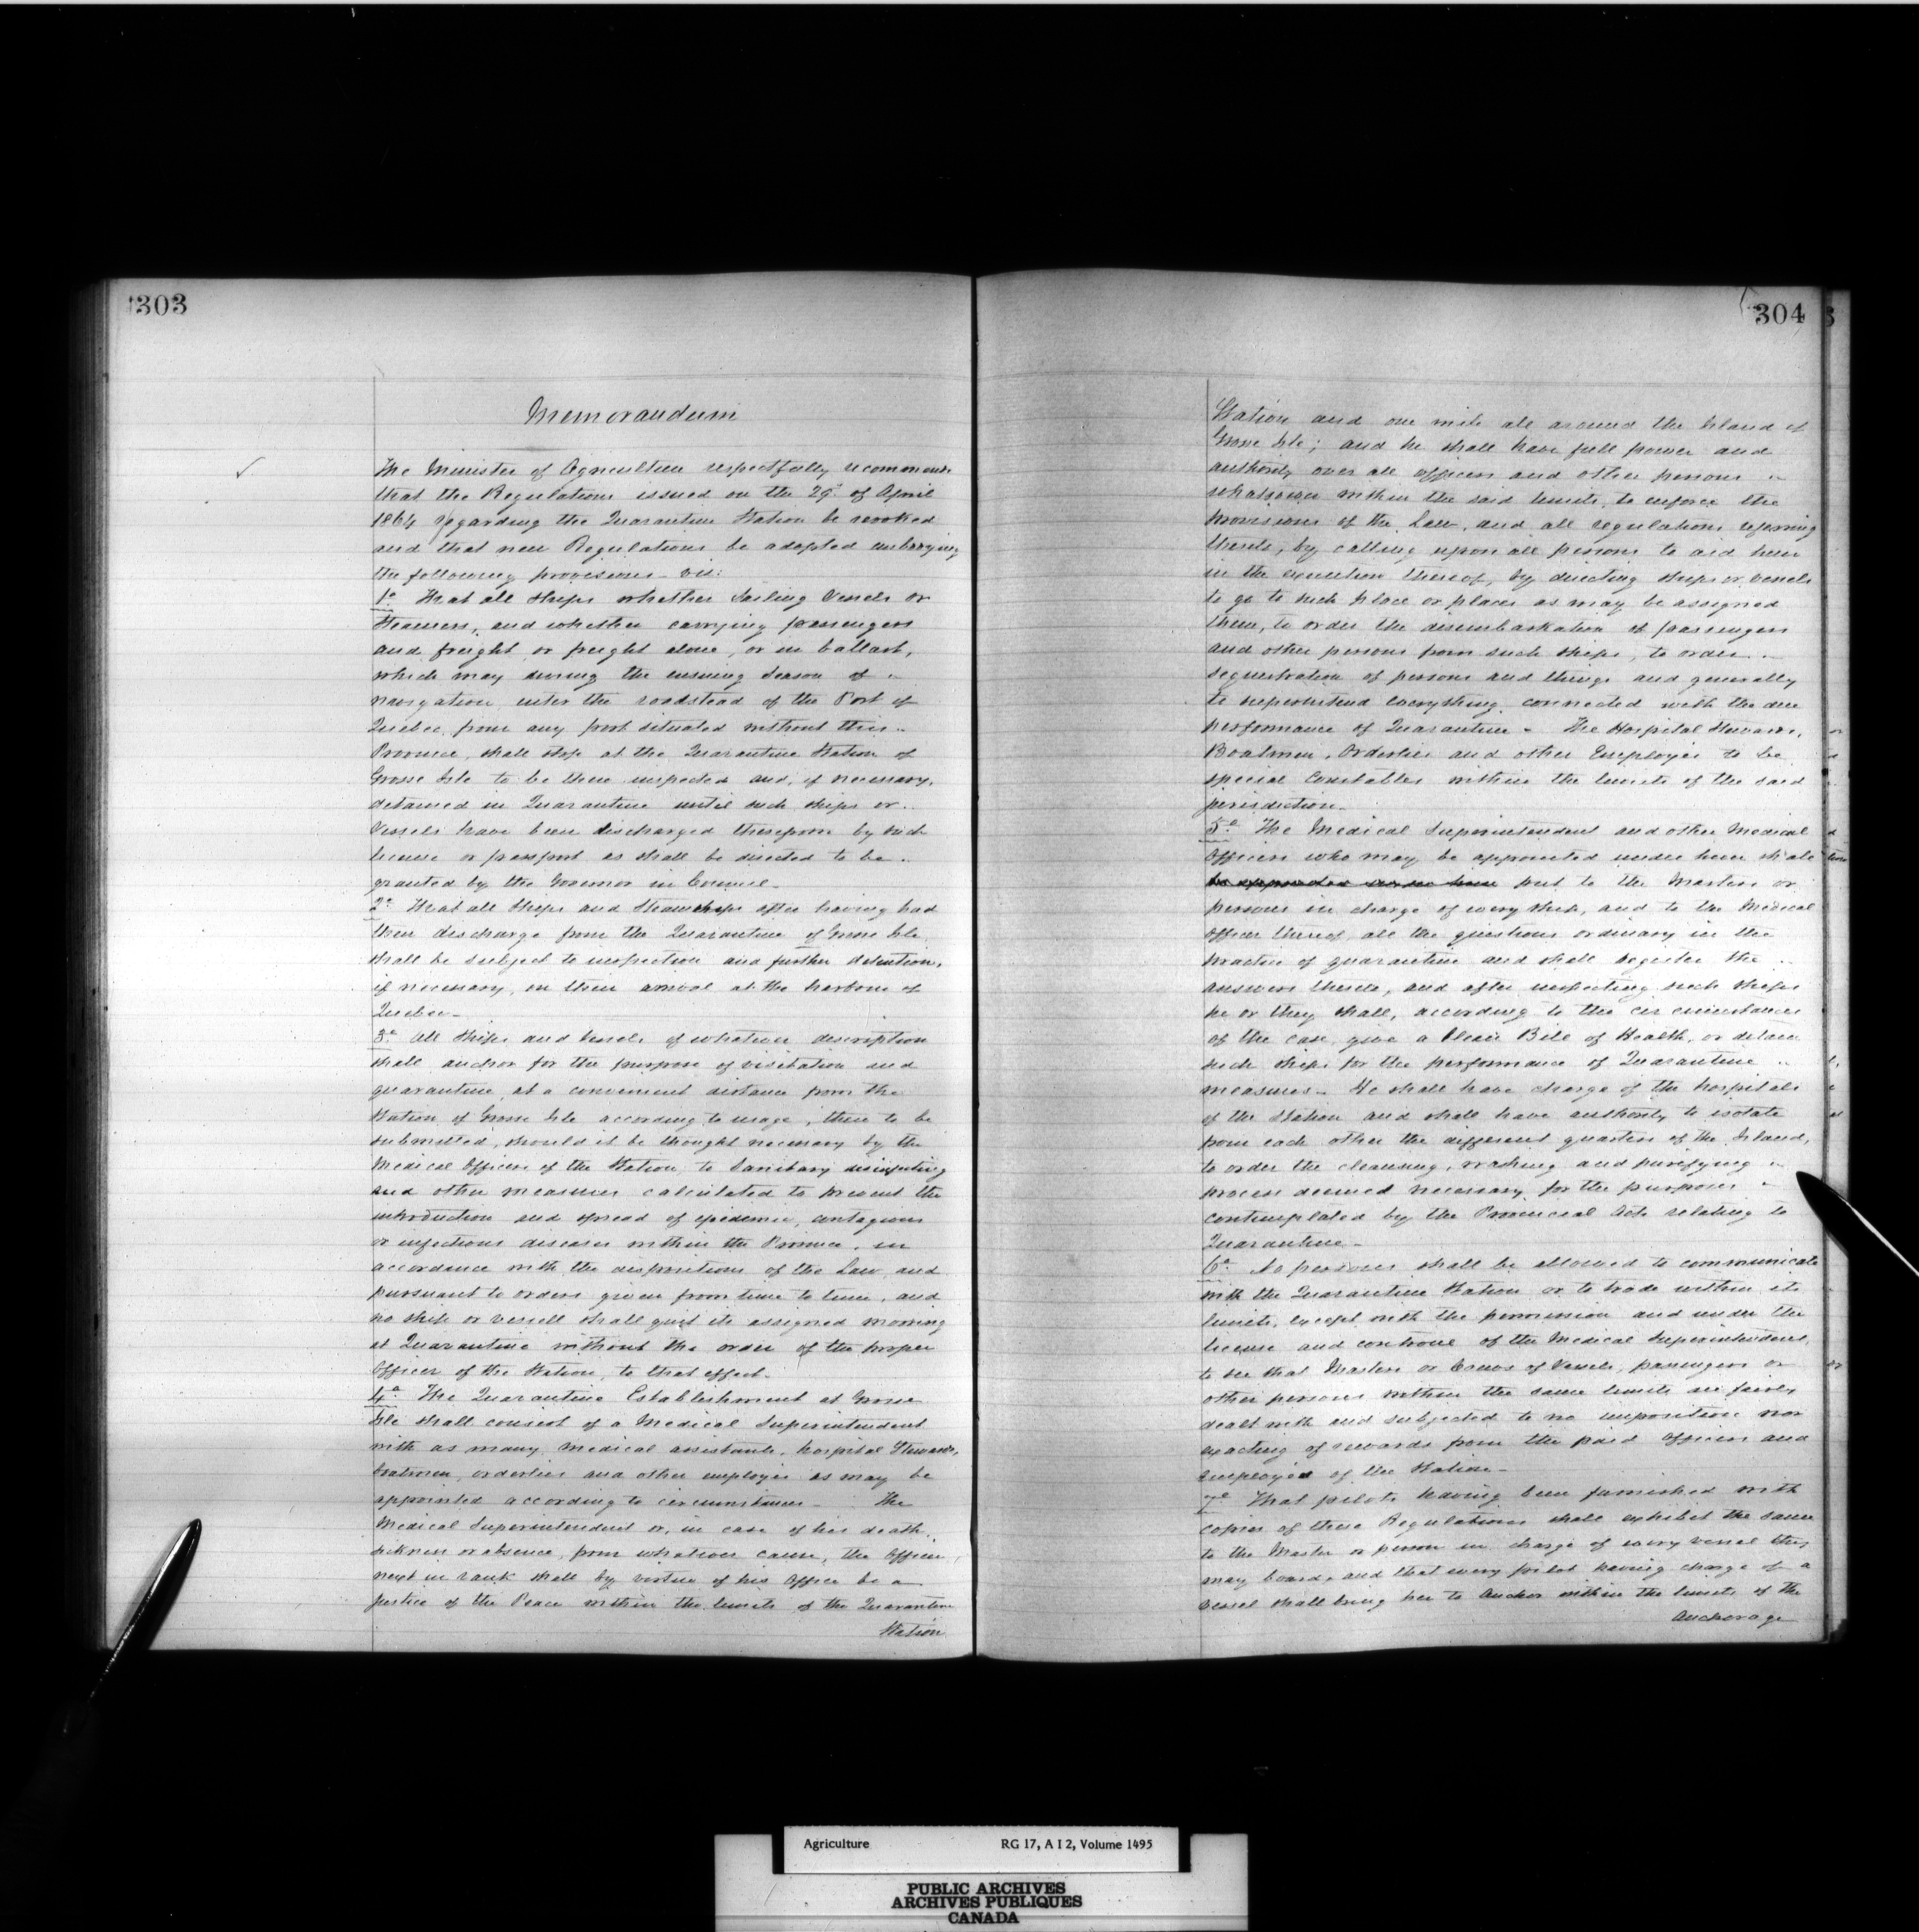 303
Memorandum
The Minister of Agriculture respectfully recommends
that the Regulations issued on the 29th of April
1864 regarding the Quarantine Station be revoked
and that new Regulations be adopted embodying
the following provisions viz:
1o That all ships whether Sailing Vessels or
Steamers, and whether carrying passengers
and freight or freight alone, or in ballast,
which may during the ensuing Season of
navigation enter the roadstead of the Port of
Quebec from any port situated without this
Province, shall stop at the Quarantine Station of
Grosse Isle to be there inspected and, if necessary,
detained in Quarantine until such ships or
Vessels have been discharged therefrom by such
license or passport as shall be directed to be
granted by the Governor in Council.
2o That all Ships and Steamships after having had
their discharge from the Quarantine of Grosse Isle
shall be subject to inspection and further detention,
if necessary, on their arrival at the harbour of
Quebec.
3o All Ships and Vessels of whatever description
shall anchor for the purpose of visitation and
quarantine at a convenient distance from the
Station of Grosse Isle according to usage, there to be
submitted, should it be thought necessary by the
Medical Officer of the Station, to Sanitary disinfecting
and other measures calculated to prevent the
introduction and spread of epidemic, contagious
or infectious diseases within the Province, in
accordance with the dispositions of the Law and
pursuant to orders given from time to time, and
no ship or vessell shall quit its assigned mooring
at Quarantine without the order of the proper
Officer of the Station, to that effect.
4o The Quarantine Establishment at Grosse
Isle shall consist of a Medical Superintendent
with as many Medical assistants, hospital Stewards,
boatmen, orderlies and other employés as may be
appointed according to circumstances - The
Medical Superintendent or, in case of his death,
sickness or absence, from whatever cause, the Officer
next in rank shall by virtue of his Office be a
Justice of the Peace within the limits of the Quarantine
Station
304
Station and one mile all around the Island of
Grosse Isle; and he shall have full power and
authority over all officers and other persons
whatsoever within the said limits, to enforce the
provisions of the Law, and all regulations referring
thereto, by calling upon all persons to aid him
in the execution thereof, by directing ships or vessels
to go to such place or places as may be assigned
them, to order the disembarkation of passengers
and other persons from such ships, to order
sequestration of persons and things and generally
to superintend everything connected with the due
performance of Quarantine. The Hospital Stewards,
Boatmen, Orderlies and other Employés to be
special Constables within the limits of the said
jurisdiction.
5o The Medical Superintendent and other Medical
Officers who may be appointed under him shall
be appointed under him put to the Masters or
persons in charge of every ship, and to the Medical
Officer thereof, all the questions ordinary in the
practice of quarantine and shall register the
answers thereto, and after inspecting such ships
he or they shall, according to the circumstances
of the case, give a Clean Bill of Health, or detain
such ships for the performance of Quarantine
measures. He shall have charge of the hospitals
of the Station and shall have authority to isolate
from each other the different quarters of the Island,
to order the cleansing, washing and purifying
process deemed necessary for the purposes
contemplated by the Provincial Acts relating to
Quarantine.
6o No persons shall be allowed to communicate
with the Quarantine Station or to trade within its
limits, except with the permission and under the
license and controul of the Medical Superintendent,
to see that Masters or Crews of Vessels, passengers or
other persons within the same limits are fairly
dealt with and subjected to no imposition nor
exacting of rewards from the paid Officers and
employés of the Station.
7o That pilots having been furnished with
copies of these Regulations shall exhibit the same
to the Master or person in charge of every vessel they
may board, and that every pilot having charge of a
vessel shall bring her to Anchor within the limits of the
Anchorage
Agriculture RG 17, A I 2, Volume 1495
PUBLIC ARCHIVES
ARCHIVES PUBLIQUES
CANADA